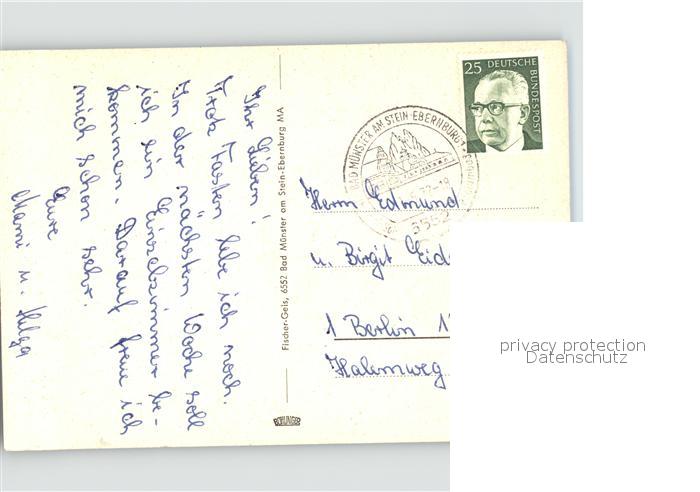 Ihr Lieben!
Trotz Fasten lebe ich noch.
In der nächsten Woche soll
ich ein Einzelzimmer be-
kommen. Darauf freue ich
mich schon sehr.
Eure
Mami u. Helga
Fischer-Geis, 6552 Bad Münster am Stein-Ebernburg MA
25 DEUTSCHE
BUNDESPOST
BAD MÜNSTER AM STEIN-EBERNBURG
6552
Herrn Edmund
u. Birgit Eid
1 Berlin 1
Halemweg
privacy protection
Datenschutz